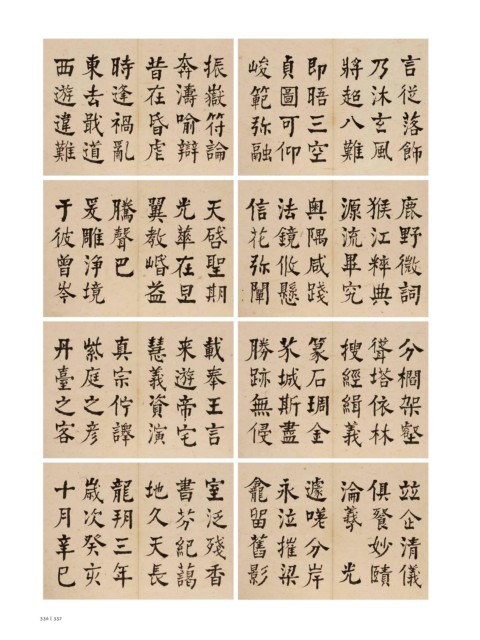 言從落飾
乃沐玄風
將超八難
即晤三空
貞圖可仰
峻範弥融
振嶽符論
奔濤喻辯
昔在昏虐
時逢禍亂
東去戢道
西遊違難
鹿野微詞
猴江粹典
源流畢究
奧隅咸踐
法鏡攸懸
信花弥闡
天啓聖期
光華在旦
翼教崏益
騰聲巴
爰雕淨境
于彼曾岑
分櫚架壑
聳塔依林
搜經緝義
篆石琱金
芥城斯盡
勝跡無侵
載奉王言
来遊帝宅
慧義資演
真宗佇譯
紫庭之彦
丹臺之客
竝企清儀
俱餐妙賾
淪羲 光
遽嗟分岸
永泣摧梁
龕留舊影
室泛殘香
書芬紀藹
地久天長
龍朔三年
歲次癸亥
十月辛巳
336 | 337